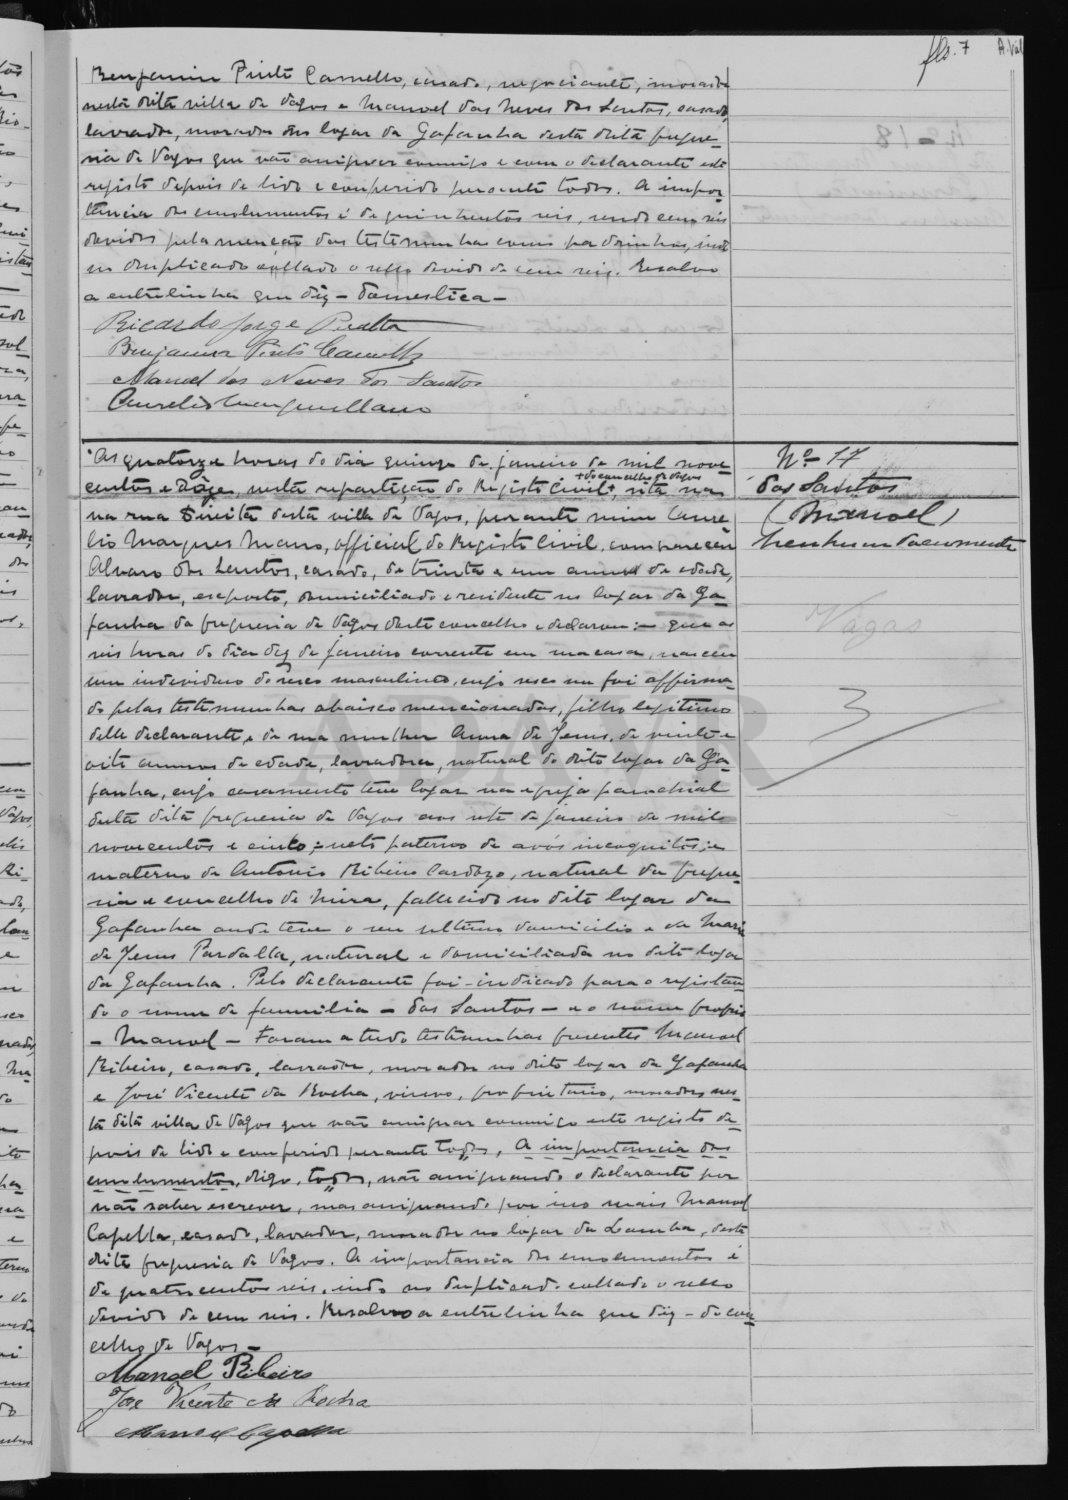 fls. 7
Benjamin Pinto Camello, casado, negociante, morador
nesta dita villa de Vagos e Manoel das Neves dos Santos, casado,
lavrador, morador no logar da Gafanha desta dita fregue-
sia de Vagos que vão assignar commigo e com o declarante este
registo depois de lido e conferido perante todos. A impor-
tancia dos emolumentos é de quinhentos reis, sendo cem reis
devidos pela menção das testemunhas como padrinhos, indo
no duplicado collado o sello devido de cem reis. Resalvo
a entrelinha que diz – domestica –
Ricardo Jorge
Benjamin Pinto Camello
Manoel das Neves dos Santos
Aurelio Marques Mano
Nº 17
dos Santos
(Manoel)
Nenhum documento
Vagos
3
As quatorze horas do dia quinze de janeiro de mil nove-
centos e doze, nesta repartição do Registo Civil + do concelho de Vagos, sita na
na rua Direita desta villa de Vagos, perante mim Aure-
lio Marques Mano, official do Registo Civil, compareceu
Alvaro dos Santos, casado, de trinta e um annos de edade,
lavrador, exposto, domiciliado e residente no logar da Ga-
fanha da freguesia de Vagos deste concelho e declarou: – que as
seis horas do dia dez de janeiro corrente em sua casa, nasceu
um individuo do sexo masculino, cujo sexo me foi affirma-
do pelas testemunhas abaixo mencionadas, filho legitimo
delle declarante, e de sua mulher Anna de Jesus, de vinte e
oito annos de edade, lavradora, natural do dito logar da Ga-
fanha, cujo casamento teve logar na egreja parochial
desta dita freguesia de Vagos aos sete de janeiro de mil
novecentos e cinco; neto paterno de avós incognitos; e
materno de Antonio Ribeiro Cardozo, natural da fregue-
sia e concelho de Mira, fallecido no dito logar da
Gafanha onde teve o seu ultimo domicilio e de Maria
de Jesus Pardalla, natural e domiciliada no dito logar
da Gafanha. Pelo declarante foi indicado para o registan-
do o nome de familia – dos Santos – e o nome proprio
– Manoel – Foram a tudo testemunhas presentes Manoel
Ribeiro, casado, lavrador, morador no dito logar da Gafanha
e José Vicente da Rocha, viuvo, proprietario, morador nes-
ta dita villa de Vagos que vão assignar commigo este registo de-
pois de lido e conferido perante todos, A importancia dos
emolumentos, digo, todos, não assignando o declarante por
não saber escrever, mas assignando por isso mais Manoel
Capella, casado, lavrador, morador no logar da Lomba, desta
dita freguesia de Vagos. A importancia dos emolumentos é
de quatrocentos reis, indo no duplicado collado o sello
devido de cem reis. Resalvo a entrelinha que diz – do con-
celho de Vagos –
Manoel Ribeiro
Jose Vicente da Rocha
Manoel Capella
ADAVR